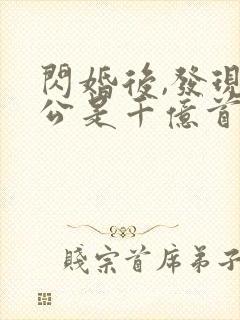 閃婚後,發現
公是千億首
賤宗首席弟子